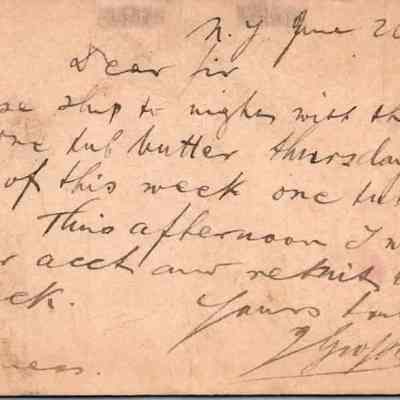 N.Y. June 20
Dear Sir
se ship to night with th
one tub butter thursday
of this week one tu
This afternoon I w
r acct and remit
ck.
Yours tru